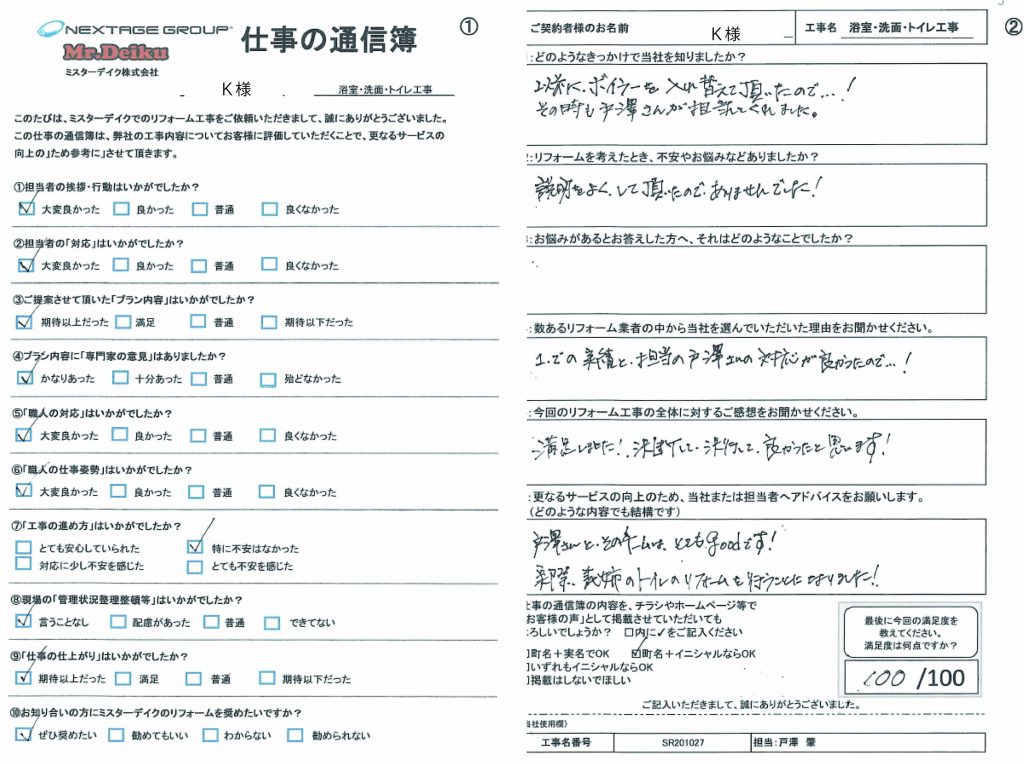 NEXTAGE GROUP
Mr.Deiku
ミスターデイク株式会社
仕事の通信簿
①
K様
浴室・洗面・トイレ工事
このたびは、ミスターデイクでのリフォーム工事をご依頼いただきまして、誠にありがとうございました。
この仕事の通信簿は、弊社の工事内容についてお客様に評価していただくことで、更なるサービスの
向上の」ため参考に」させて頂きます。
①担当者の挨拶・行動はいかがでしたか?
大変良かった 良かった 普通 良くなかった
②担当者の「対応」はいかがでしたか?
大変良かった 良かった 普通 良くなかった
③ご提案させて頂いた「プラン内容」はいかがでしたか?
期待以上だった 満足 普通 期待以下だった
④プラン内容に「専門家の意見」はありましたか?
かなりあった 十分あった 普通 殆どなかった
⑤「職人の対応」はいかがでしたか?
大変良かった 良かった 普通 良くなかった
⑥「職人の仕事姿勢」はいかがでしたか?
大変良かった 良かった 普通 良くなかった
⑦「工事の進め方」はいかがでしたか?
とても安心していられた 特に不安はなかった
対応に少し不安を感じた とても不安を感じた
⑧現場の「管理状況整理整頓等」はいかがでしたか?
言うことなし 配慮があった 普通 できてない
⑨「仕事の仕上がり」はいかがでしたか?
期待以上だった 満足 普通 期待以下だった
⑩お知り合いの方にミスターデイクのリフォームを奨めたいですか?
ぜひ奨めたい 勧めてもいい わからない 勧められない
②
ご契約者様のお名前 K様 工事名 浴室・洗面・トイレ工事
:どのようなきっかけで当社を知りましたか?
以前に、ボイラーを入れ替えて頂いたので…!
その時も戸澤さんが担当してくれました。
:リフォームを考えたとき、不安やお悩みなどありましたか?
説明をよくして頂いたので、ありませんでした!
:お悩みがあるとお答えした方へ、それはどのようなことでしたか?
:数あるリフォーム業者の中から当社を選んでいただいた理由をお聞かせください。
の実績と、担当の戸澤さんの対応が良かったので…!
:今回のリフォーム工事の全体に対するご感想をお聞かせください。
満足しました!決断して、決行して、良かったと思います!
:更なるサービスの向上のため、当社または担当者へアドバイスをお願いします。
(どのような内容でも結構です)
戸澤さんと、そのチームは、とてもgoodです!
実際、義姉のトイレのリフォームを行うことになりました!
仕事の通信簿の内容を、チラシやホームページ等で
お客様の声」として掲載させていただいても
よろしいでしょうか? □内に✓をご記入ください
町名+実名でOK 町名+イニシャルならOK
いずれもイニシャルならOK
掲載はしないでほしい
最後に今回の満足度を
教えてください。
満足度は何点ですか?
100 /100
ご記入いただきまして、誠にありがとうございました。
当社使用欄)
工事名番号 SR201027 担当:戸澤 肇